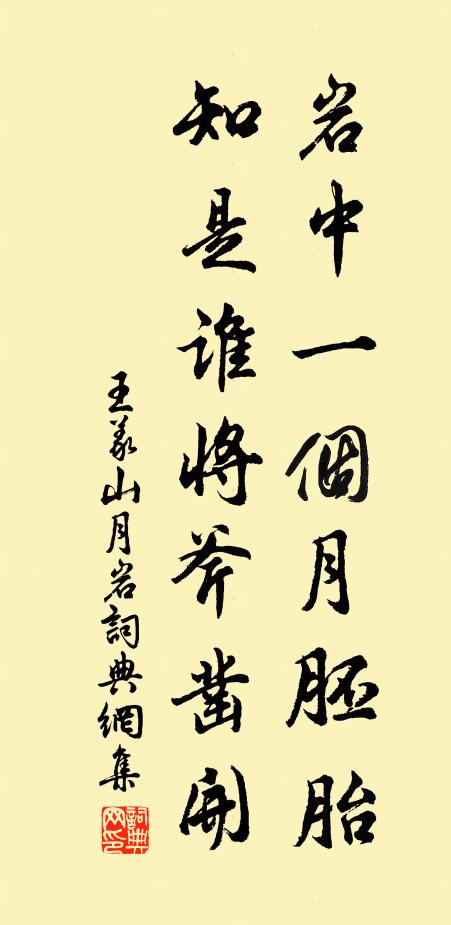 岩中一個月胚胎
知是誰將斧鑿開
王义山月岩詞典網集
詞典
网印